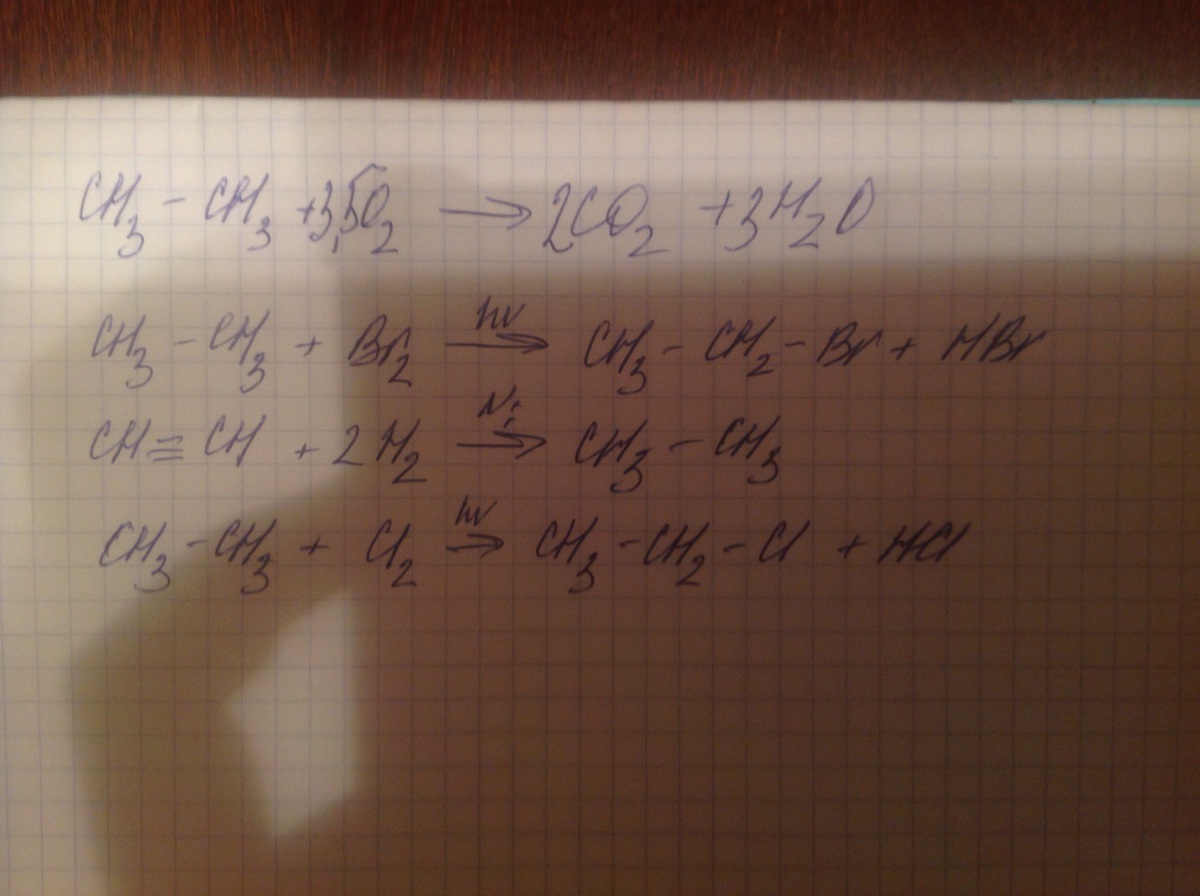 CH₃ - CH₃ + 3,5O₂ → 2CO₂ + 3H₂O
CH₃ - CH₃ + Br₂ →(hν) CH₃ - CH₂ - Br + HBr
CH ≡ CH + 2H₂ →(Ni) CH₃ - CH₃
CH₃ - CH₃ + Cl₂ →(hν) CH₃ - CH₂ - Cl + HCl